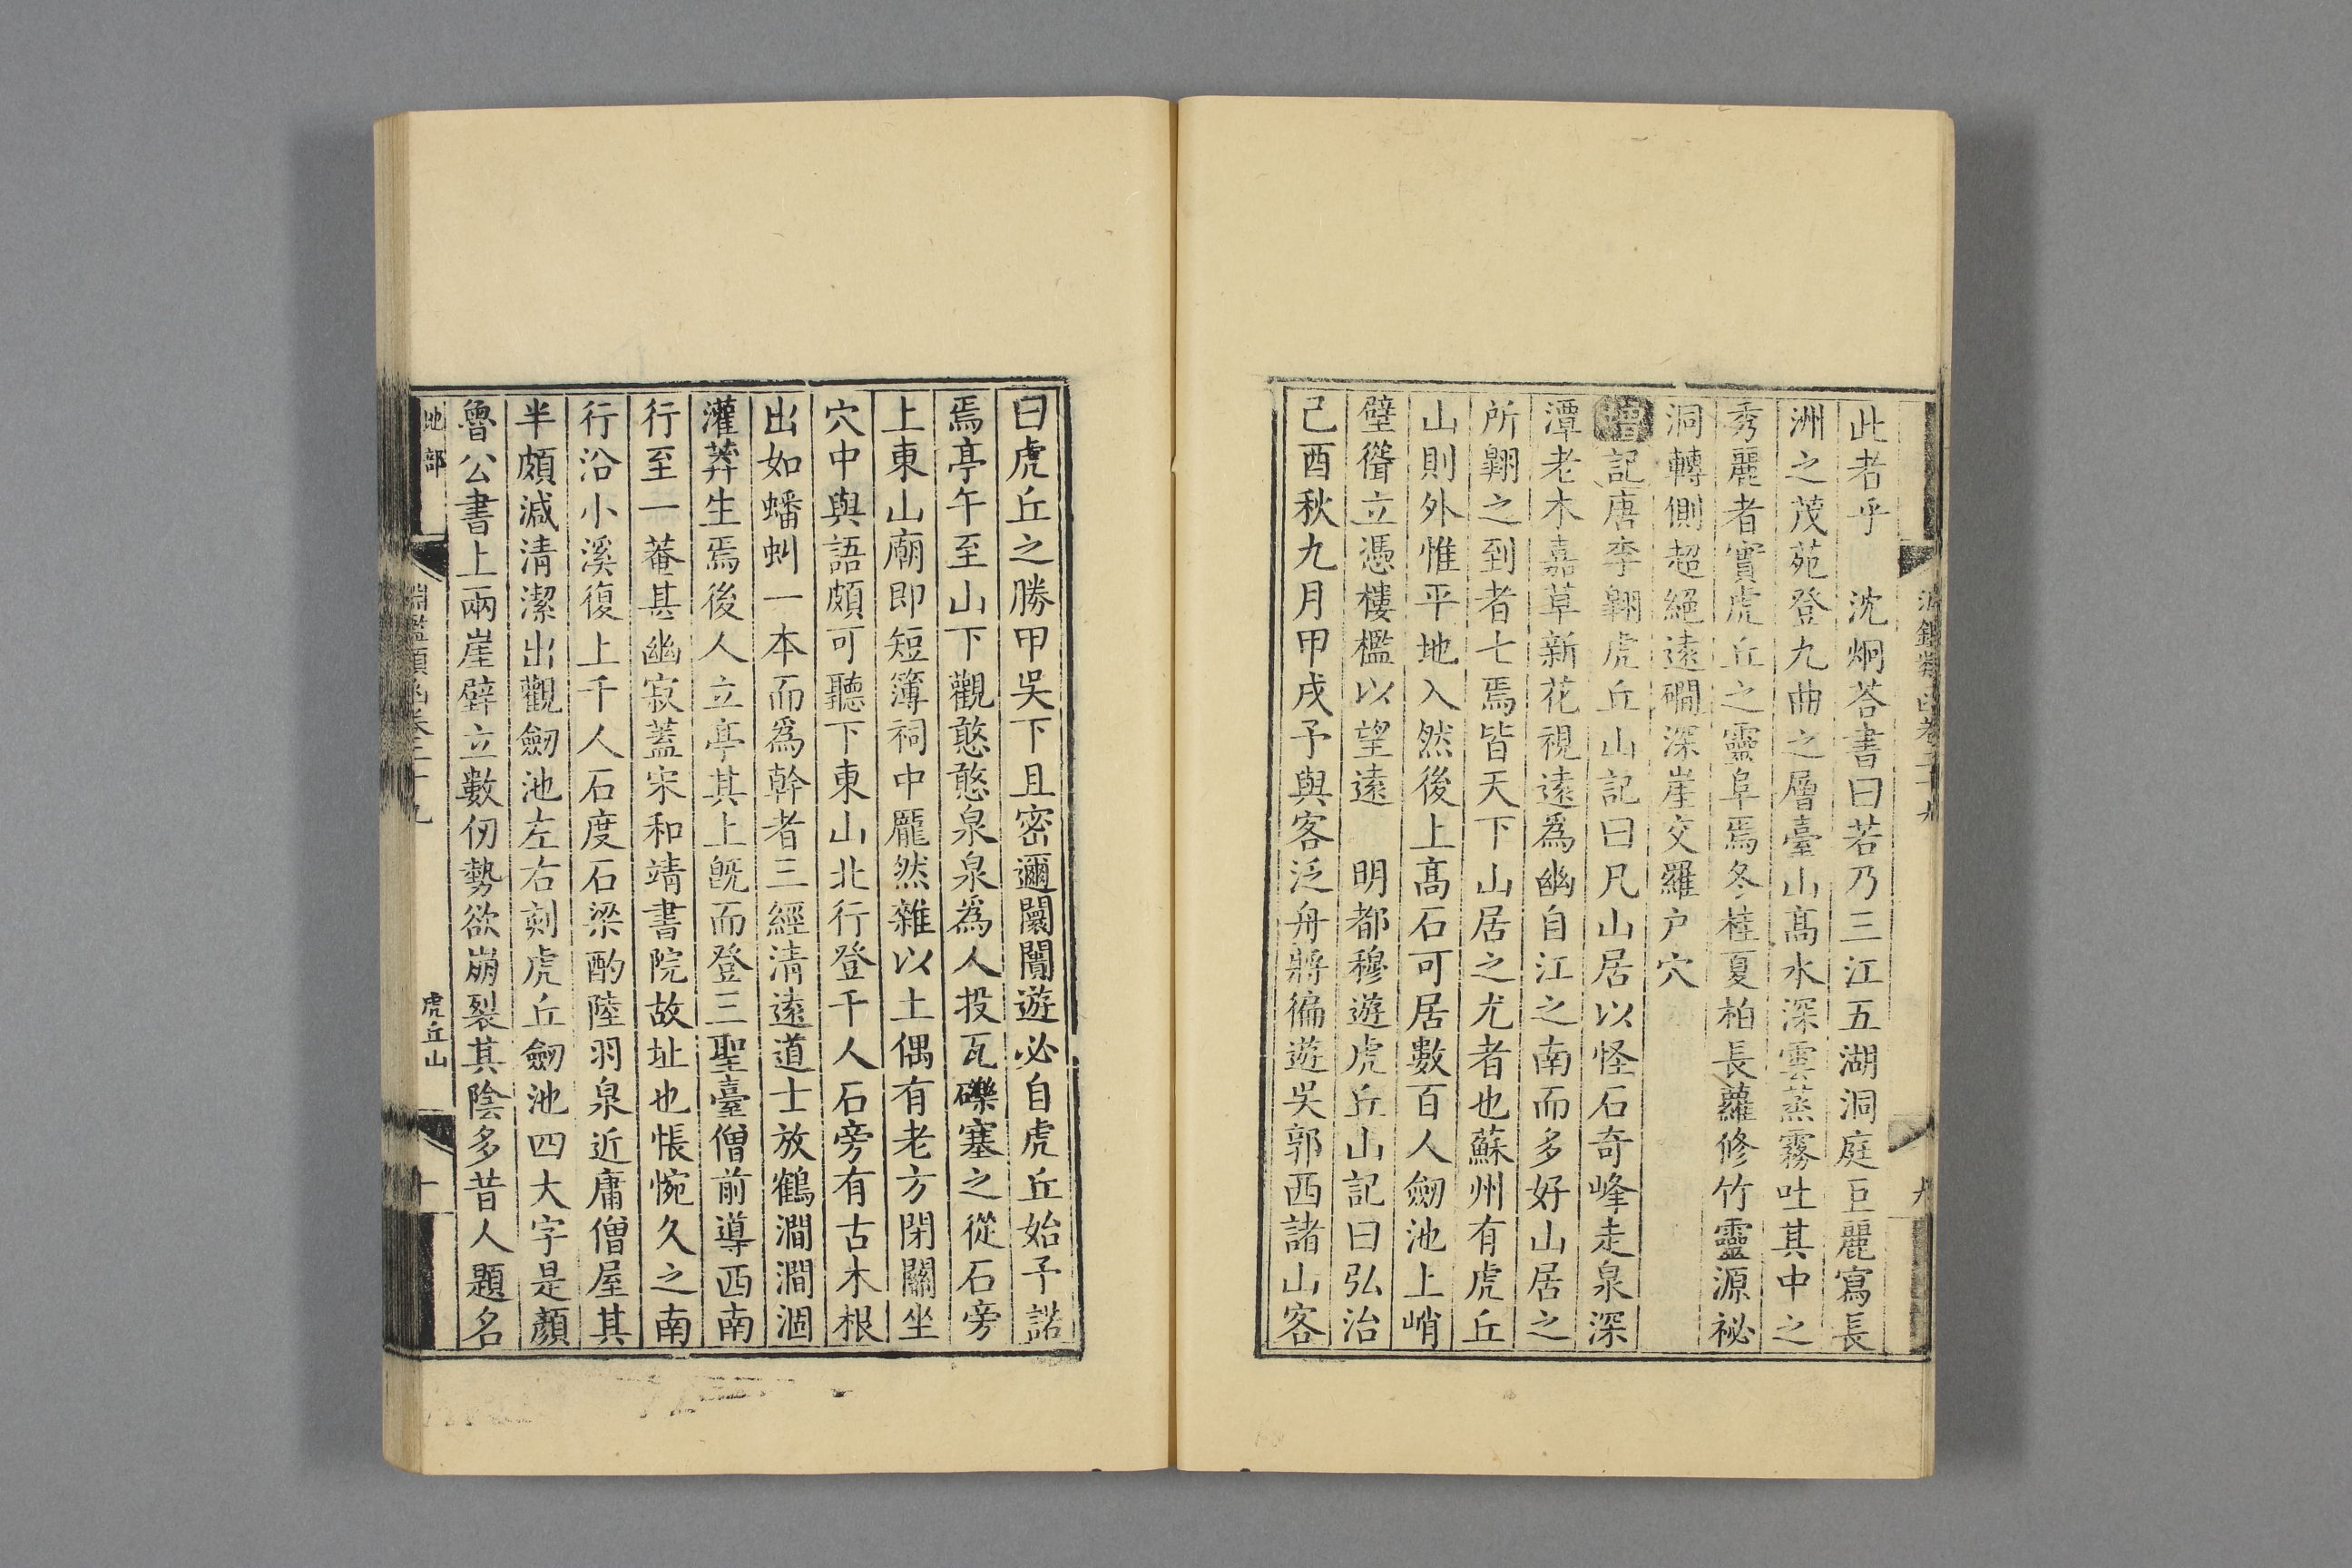 此者乎　沈炯荅書曰若乃三江五湖洞庭巨麗寫長
洲之茂苑登九曲之層臺山高水深雲蒸霧吐其中之
秀麗者實虎丘之靈阜焉冬桂夏柏長蘿修竹靈源祕
洞轉側超絕遠磵深崖交羅户穴
增記唐李翺虎丘山記曰凡山居以怪石奇峰走泉深
潭老木嘉草新花視遠爲幽自江之南而多好山居之
所翺之到者七焉皆天下山居之尤者也蘇州有虎丘
山則外惟平地入然後上高石可居數百人劒池上峭
壁聳立憑樓檻以望遠　明都穆遊虎丘山記曰弘治
己酉秋九月甲戌予與客泛舟將徧遊吳郭西諸山客
曰虎丘之勝甲吳下且密邇闤闠遊必自虎丘始予諾
焉亭午至山下觀憨憨泉泉爲人投瓦礫塞之從石旁
上東山廟即短簿祠中龎然雜以土偶有老方閉關坐
穴中與語頗可聽下東山北行登千人石旁有古木根
出如蟠虯一本而爲幹者三經清遠道士放鶴澗澗涸
灌莽生焉後人立亭其上旣而登三聖臺僧前導西南
行至一菴甚幽寂蓋宋和靖書院故址也悵惋久之南
行沿小溪復上千人石度石梁酌陸羽泉近庸僧屋其
半頗減清潔出觀劒池左右刻虎丘劒池四大字是顏
魯公書上兩崖壁立數仞勢欲崩裂其陰多昔人題名
地部
淵鑑類函卷二十九
虎丘山
十